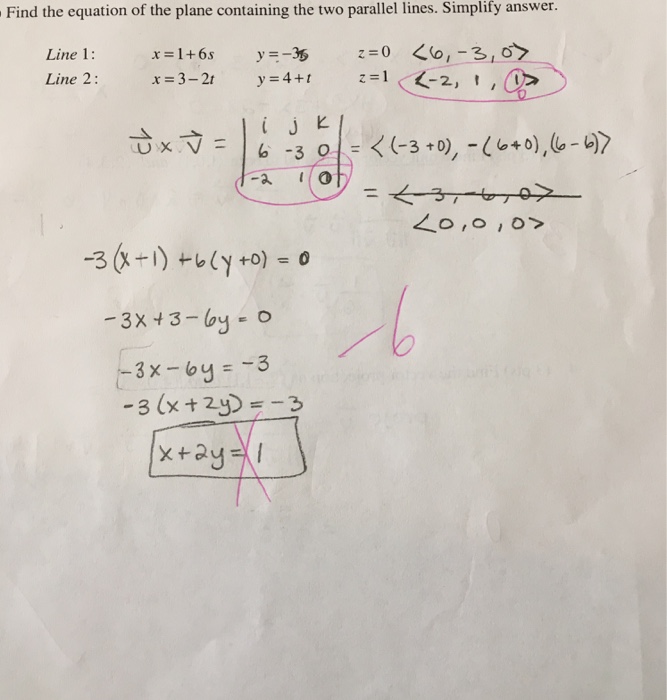 Find the equation of the plane containing the two parallel lines. Simplify answer.
Line 1: x = 1 + 6s y = -3s z = 0 <6, -3, 0>
Line 2: x = 3 - 2t y = 4 + t z = 1 <-2, 1, 1>
0
i j k
u × v = 6 -3 0 = <(-3 +0), -(6+0), (6-6)>
-2 1 0
= <-3, -6, 0>
<0, 0, 0>
-3(x+1) +6(y+0) = 0
-3x+3-6y = 0
-6
-3x-6y = -3
-3(x+2y) = -3
x+2y = 1